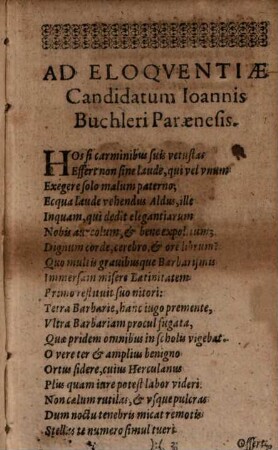 AD ELOQVENTIÆ
Candidatum Ioannis
Buchleri Parænesis.
HOs si carminibus suis vetustas
Effert non sine laude, qui vel vnum
Exegere solo malum paterno;
Ecqua laude vehendus Aldus, ille
Inquam, qui dedit elegantiarum
Nobis & bene expolitum;
Dignum corde, cerebro, & ore librum?
Quo multis grauibusque Barbarismis
Immersam misere Latinitatem
Primo restituit suo nitori:
Tetra Barbarie, hanc iugo premente,
Vltra Barbariam procul fugata,
Quæ pridem omnibus in scholis vigebat.
O vere ter & amplius benigno
Ortus sidere, cuius Herculanus
Plus quam inre potest labor videri:
Non cælum rutilas, & vsque pulcras
Dum noctu tenebris micat remotis
Stellas te numero simul tueri.
Offerts